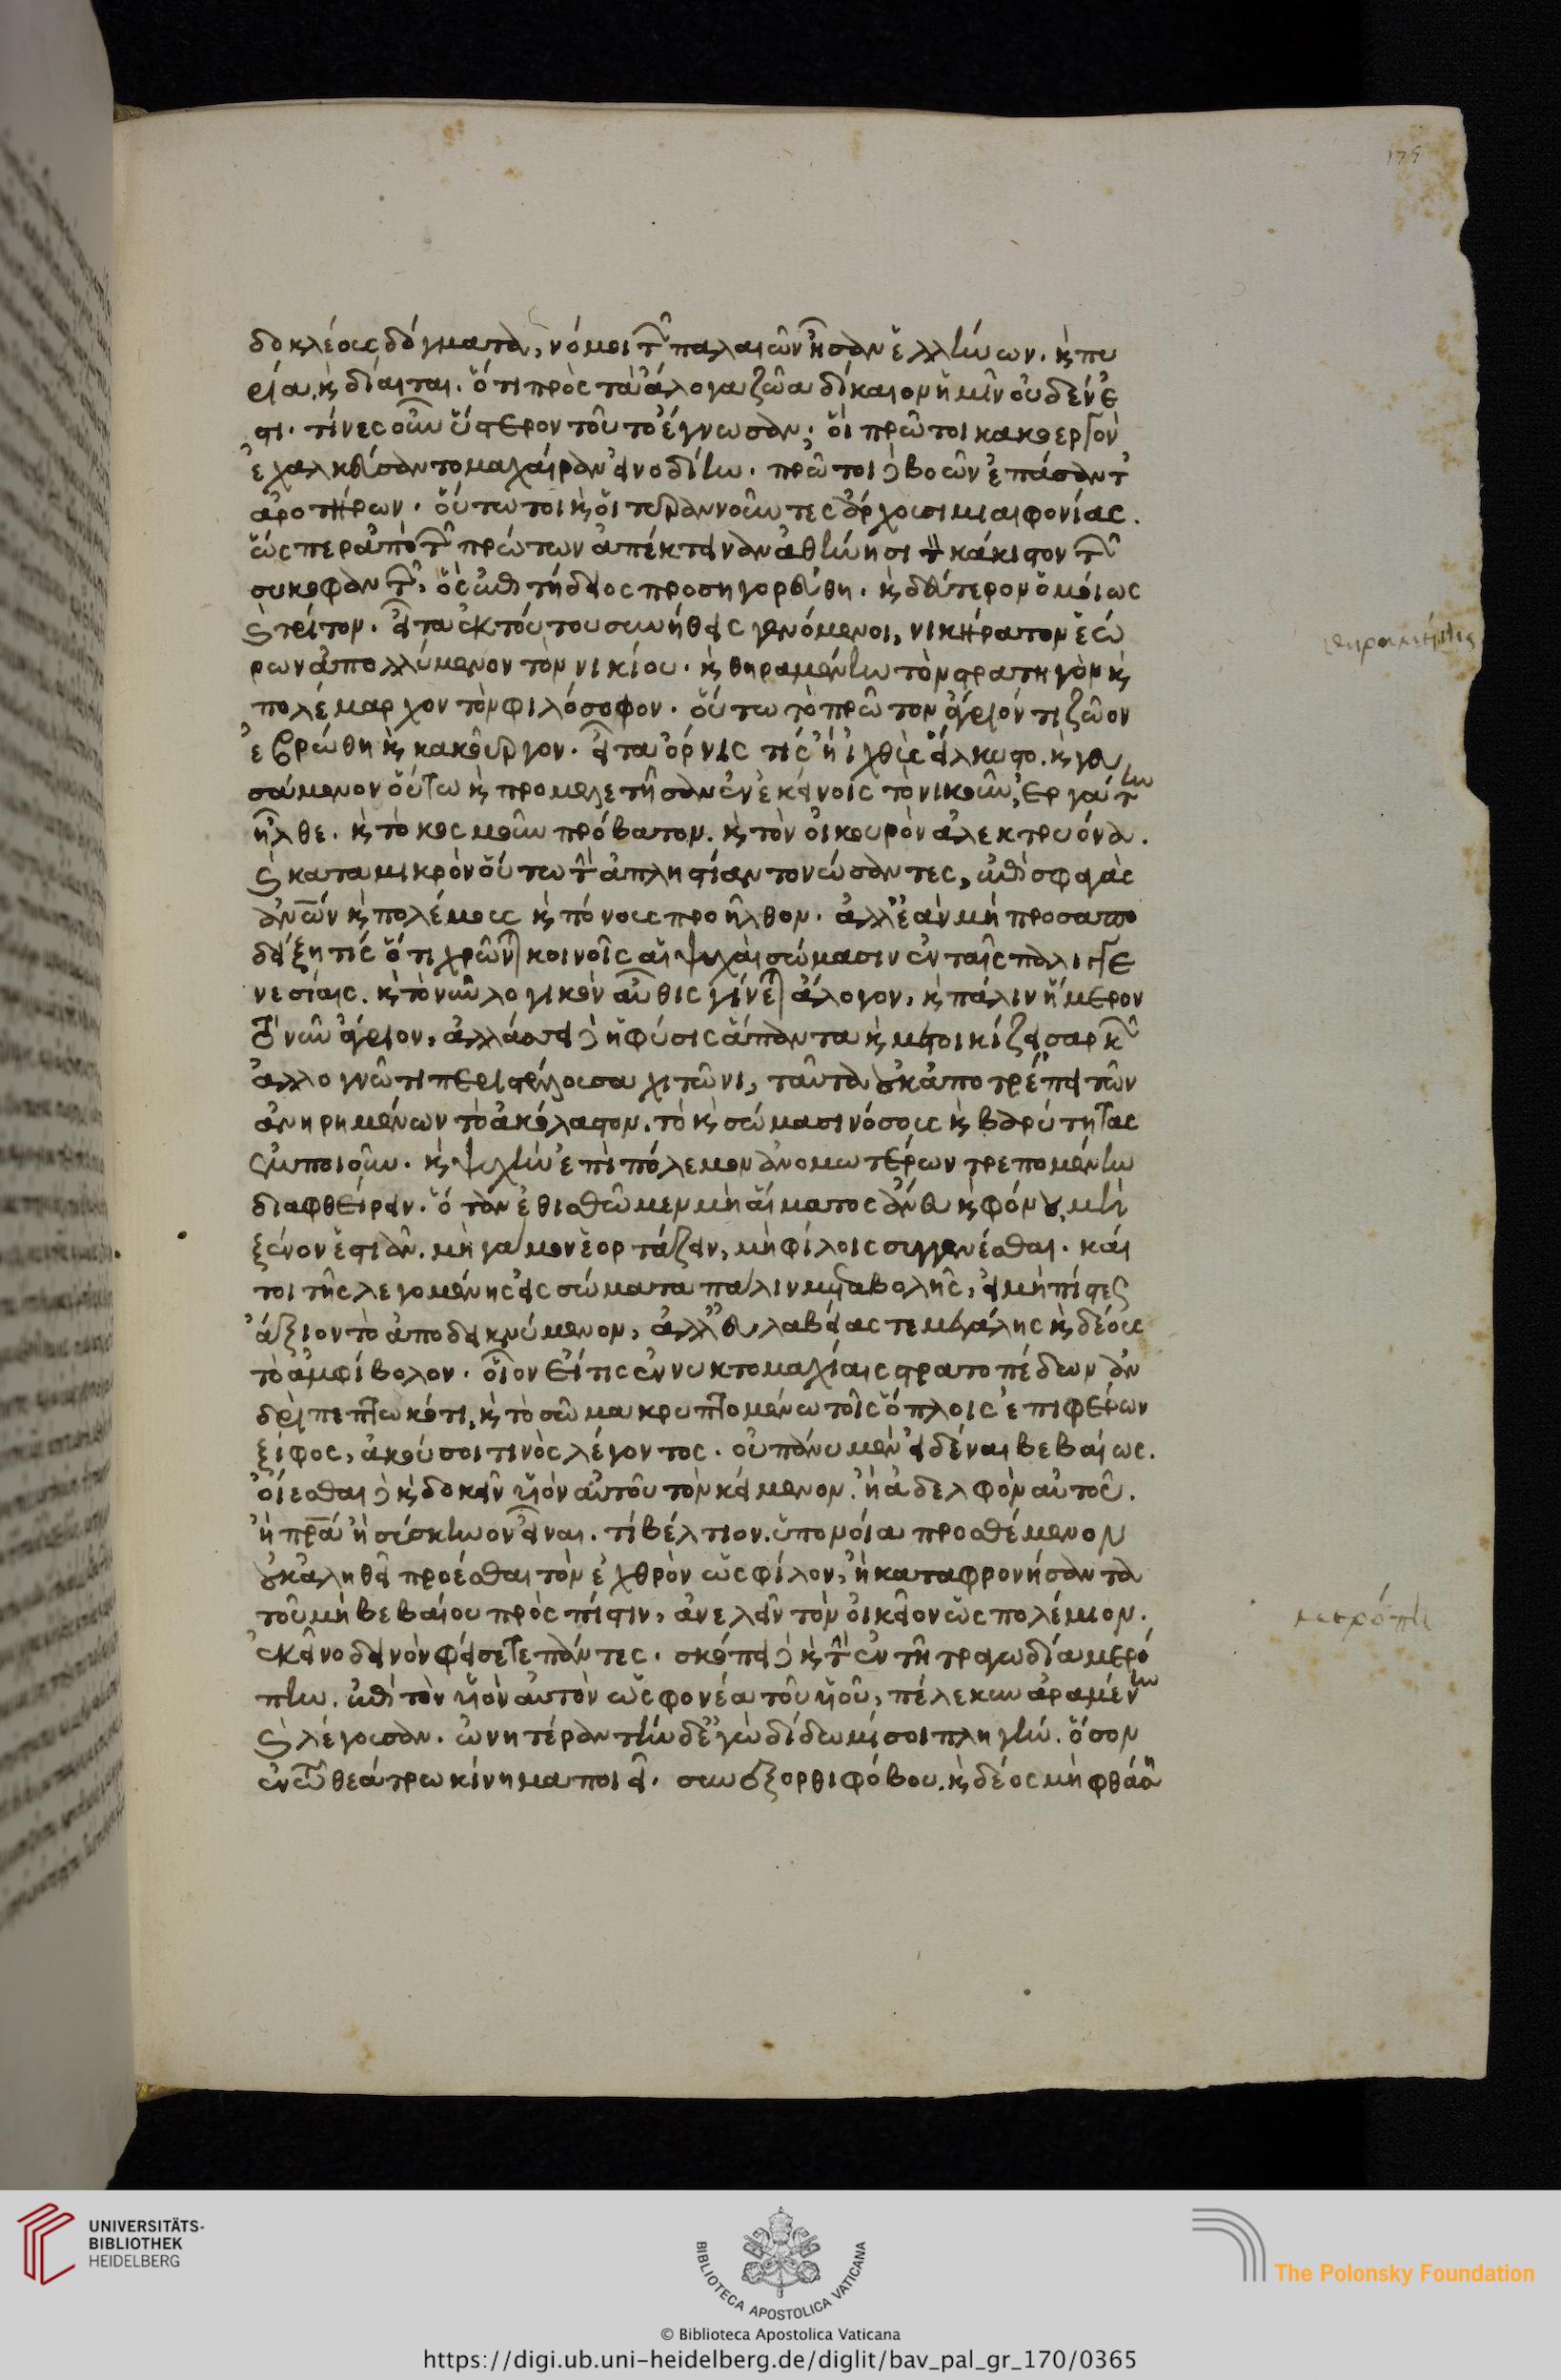 175
δοκλέους δόγματα, νόμοι τῶν παλαιῶν ἦσαν ἑλλήνων. καὶ πυ
ρία, καὶ δίαιται. ὅτι πρὸς τὰ ἄλογα ζῶα δίκαιον ἡμῖν οὐδέν ἐ
στι. τίνες οὖν ὕστερον τοῦτο ἔγνωσαν; οἳ πρῶτοι κακοεργὸν
ἐχαλκεύσαντο μαχαίραν εἰνοδίην. πρῶτοι δὲ βοῶν ἐπάσαντ'
ἀροτήρων. οὕτω τοι καὶ οἱ τυραννοῦντες ἄρχουσι μιαιφονίας.
ὥσπερ ἀπὸ τῶν πρώτων ἀπέκτειναν ἀθήνησι τὸν κάκιστον τῶν
συκοφαντῶν, ὃς ἐπιτήδειος προσηγορεύθη. καὶ δεύτερον ὁμοίως
καὶ τρίτον. εἶτα ἐκ τούτου συνήθεις γενόμενοι, νικήρατον ἑώ
ρων ἀπολλύμενον τὸν νικίου. καὶ θηραμένην τὸν στρατηγὸν καὶ
πολέμαρχον τὸν φιλόσοφον. οὕτω τὸ πρῶτον ἄγριόν τι ζῶον
ἐβρώθη καὶ κακοῦργον. εἶτα ὄρνις τίς ἢ ἰχθὺς εἵλκυστο. καὶ γευ
σάμενον οὕτω καὶ προμελετῆσαν ἐν ἐκείνοις τὸ νικοῦν, ἐργάτην
ἦλθε. καὶ τὸ κοσμοῦν πρόβατον. καὶ τὸν οἰκουρὸν ἀλεκτρυόνα.
καὶ κατα μικρὸν οὕτω τὴν ἀπληστίαν τονώσαντες, ἐπὶ σφαγὰς
ἀνῶν καὶ πολέμους καὶ πόνους προῆλθον. ἀλλ' ἐὰν μὴ προσαπο
δείξη τίς ὅτι χρῶνται κοινοῖς αἱ ψυχαὶ σώμασιν ἐν ταῖς παλιγγε
νεσίαις. καὶ τὸ νῦν λογικὸν αὖθις γίνεται ἄλογον, καὶ πάλιν ἥμερον
τὸ νῦν ἄγριον, ἀλλάσσει δὲ ἡ φύσις ἅπαντα καὶ μετοικίζει σαρκῶν
ἀλλογνῶτι περιστέλλουσα χιτῶνι, ταῦτα οὐκ ἀποτρέπει τῶν
ἀνηρημένων τὸ ἀκόλαστον. τὸ καὶ σώμασι νόσους καὶ βαρύτητας
ἐμποιοῦν. καὶ ψυχὴν ἐπὶ πόλεμον ἀνομωτέρων τρεπομένην
διαφθείρειν. ὅταν ἐθισθῶμεν μὴ αἵματος ἄνευ καὶ φόνου, μὴ
ξένον ἑστιᾶν. μὴ γάμον ἑορτάζειν, μὴ φίλοις συγγενέσθαι. καί
τοι τῆς λεγομένης εἰς σώματα πάλιν μεταβολῆς, εἰ μὴ πίστεως
ἄξιον τὸ ἀποδεικνύμενον, ἀλλ' εὐλαβείας τε μεγάλης καὶ δέους
τὸ ἀμφίβολον. οἷον εἴ τις ἐν νυκτομαχίαις στρατοπέδων ἀν
δρὶ πεπτωκότι, καὶ τὸ σῶμα κρυπτομένω τοῖς ὅπλοις ἐπιφέρων
ξίφος, ἀκούσοι τινὸς λέγοντος. οὐ πάνυ μὲν εἰδέναι βεβαίως.
οἴεσθαι δὲ καὶ δοκεῖν υἱὸν αὐτοῦ τὸν κείμενον. ἢ ἀδελφὸν αὐτοῦ.
ἢ πρα ἢ σύσκηνον εἶναι. τί βέλτιον. ὑπονοία προσθέμενον
οὐκ ἀληθεῖ προέσθαι τὸν ἐχθρὸν ὡς φίλον, ἢ καταφρονήσαντα
τοῦ μὴ βεβαίου πρὸς πίστιν, ἀνελεῖν τὸν οἰκεῖον ὡς πολέμιον.
ἐκεῖνο δεινὸν φήσετε πάντες. σκόπει δὲ καὶ τὴν ἐν τῆ τραγωδία μερό
πην. ἐπὶ τὸν υἱὸν αὐτὸν ὡς φονέα τοῦ υἱοῦ, πέλεκυν ἀραμένην
καὶ λέγουσαν. ὠνητέραν τήνδ' ἐγὼ δίδωμί σοι πληγήν. ὅσον
ἐν τῶ θεάτρω κίνημα ποιεῖ. συνεξορθι φόβου. καὶ δέος μὴ φθάση
θηραμένης
μερόπη
UNIVERSITÄTS-
BIBLIOTHEK
HEIDELBERG
BIBLIOTECA APOSTOLICA VATICANA
The Polonsky Foundation
© Biblioteca Apostolica Vaticana
https://digi.ub.uni-heidelberg.de/diglit/bav_pal_gr_170/0365